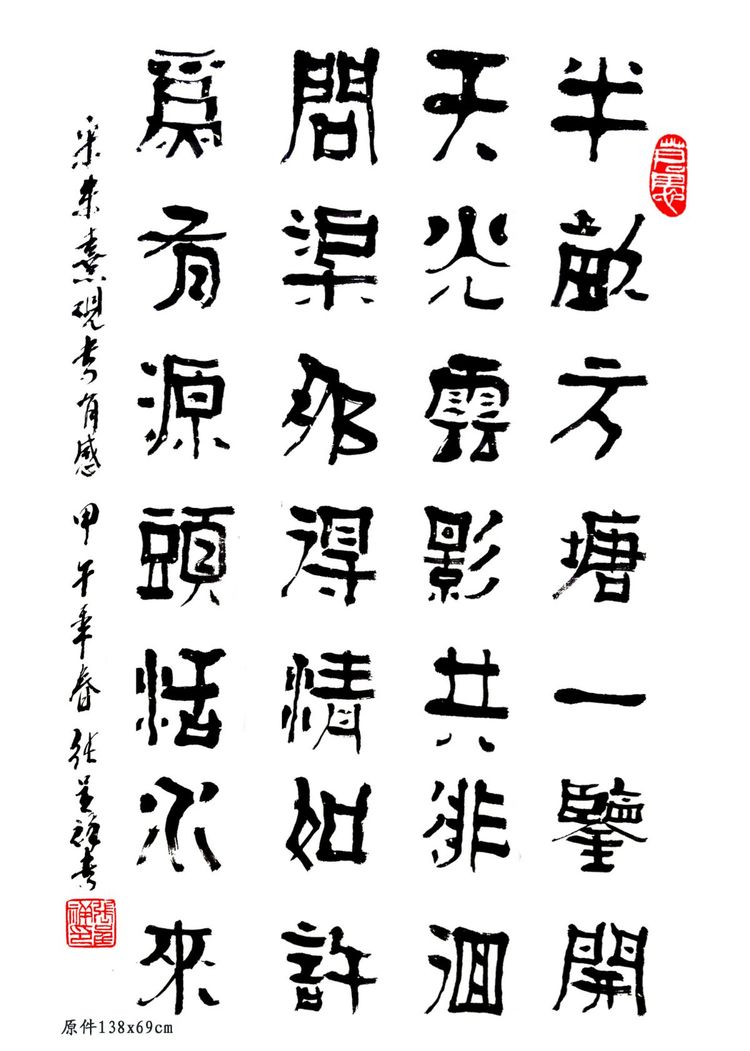 半畝方塘一鑒開
天光雲影共徘徊
問渠那得情如許
爲有源頭恬水來
宋朱熹觀書有感 甲午年春 張呈祥書
張呈祥印
原件138x69cm